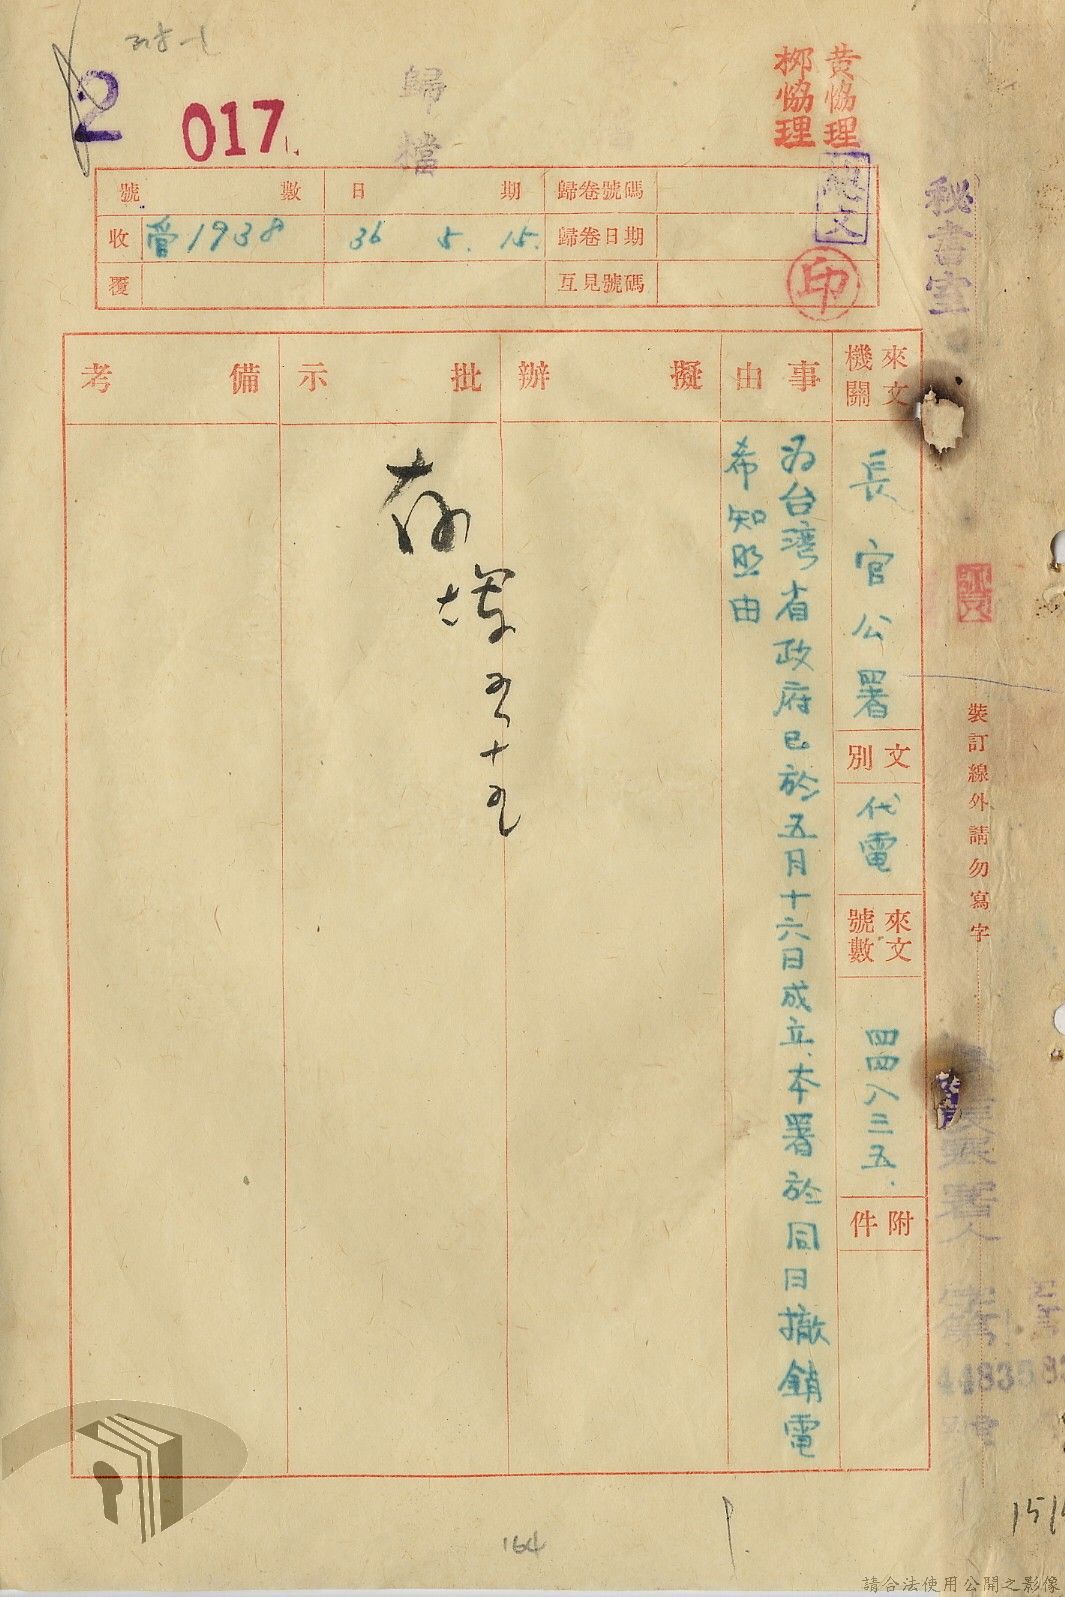 2
017
歸檔
黃協理
柳協理
號數
日期
歸卷號碼
收
1938
36 5. 15.
歸卷日期
覆
互見號碼
印
秘書室
來文機關
長官公署
文別
代電
來文號數
四四八三五.
附件
事由
為台灣省政府已於五月十六日成立.本署於同日撤銷電
希知照由
擬辦
批示
存
備考
裝訂線外請勿寫字
44835
164
請合法使用公開之影像